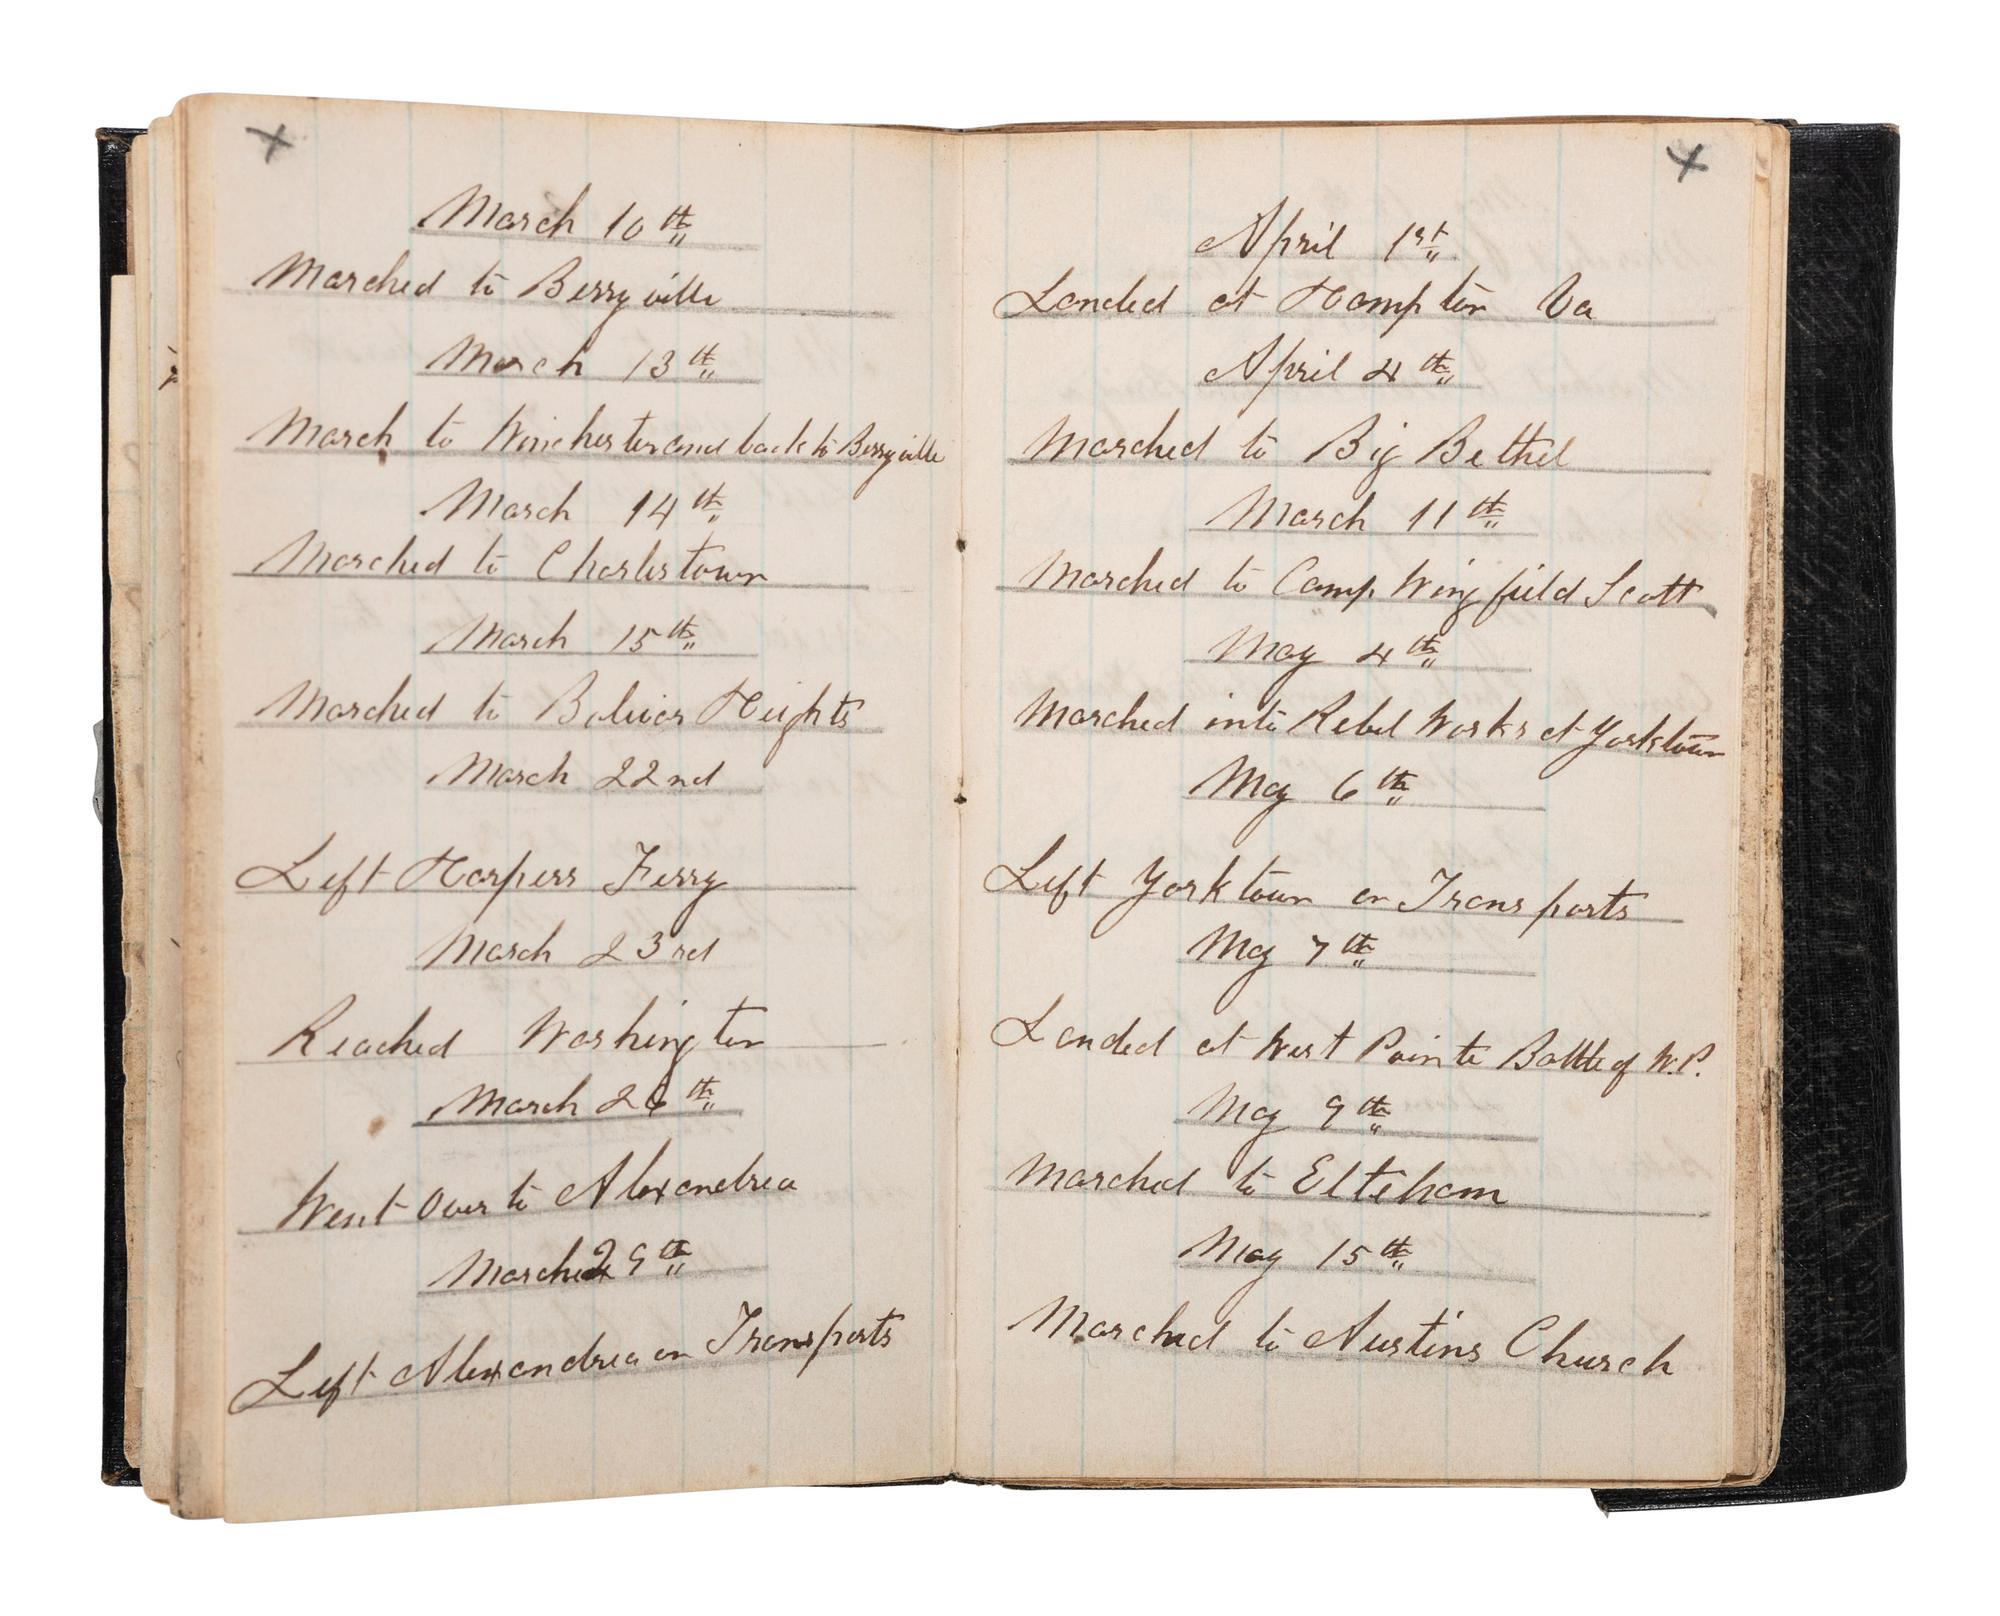 March 10th
Marched to Berryville
March 13th
March to Winchester and back to Berryville
March 14th
Marched to Charlestown
March 15th
Marched to Bolivar Heights
March 22nd
Left Harpers Ferry
March 23rd
Reached Washington
March 26th
Went Over to Alexandrea
March 29th
Left Alexandrea on Transports
April 1st
Landed at Hampton Va
April 4th
Marched to Big Bethel
March 11th
Marched to Camp Wingfield Scott
May 4th
Marched into Rebel Works at Yorktown
May 6th
Left Yorktown on Transports
May 7th
Landed at West Pointe Battle of W.P.
May 9th
Marched to Elteham
May 15th
Marched to Austins Church